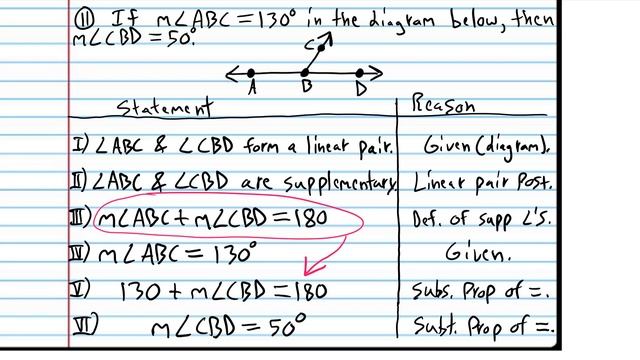 ⑪ If m∠ABC = 130° in the diagram below, then
m∠CBD = 50°.
C
A B D
Statement Reason
I) ∠ABC & ∠CBD form a linear pair. Given (diagram).
II) ∠ABC & ∠CBD are supplementary Linear pair Post.
III) m∠ABC + m∠CBD = 180 Def. of supp ∠'s.
IV) m∠ABC = 130° Given.
V) 130 + m∠CBD = 180 Subs. Prop of =.
VI) m∠CBD = 50° Subt. Prop of =.